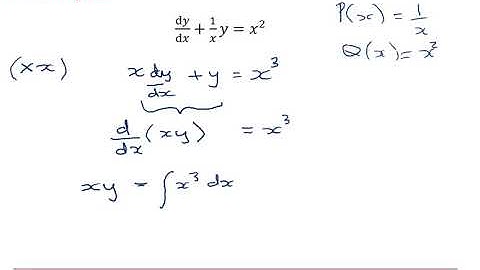 dy/dx + 1/x y = x²
P(x) = 1/x
Q(x) = x²
(×x) x dy/dx + y = x³
d/dx (xy) = x³
xy = ∫x³ dx